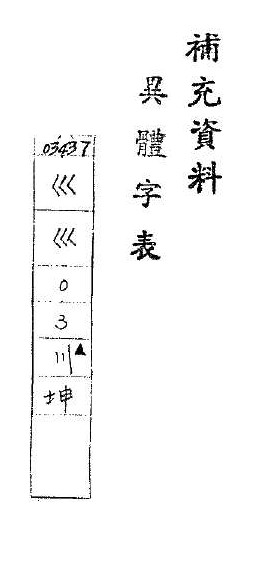 補充資料
異體字表
03437
巛
巛
0
3
川▲
坤